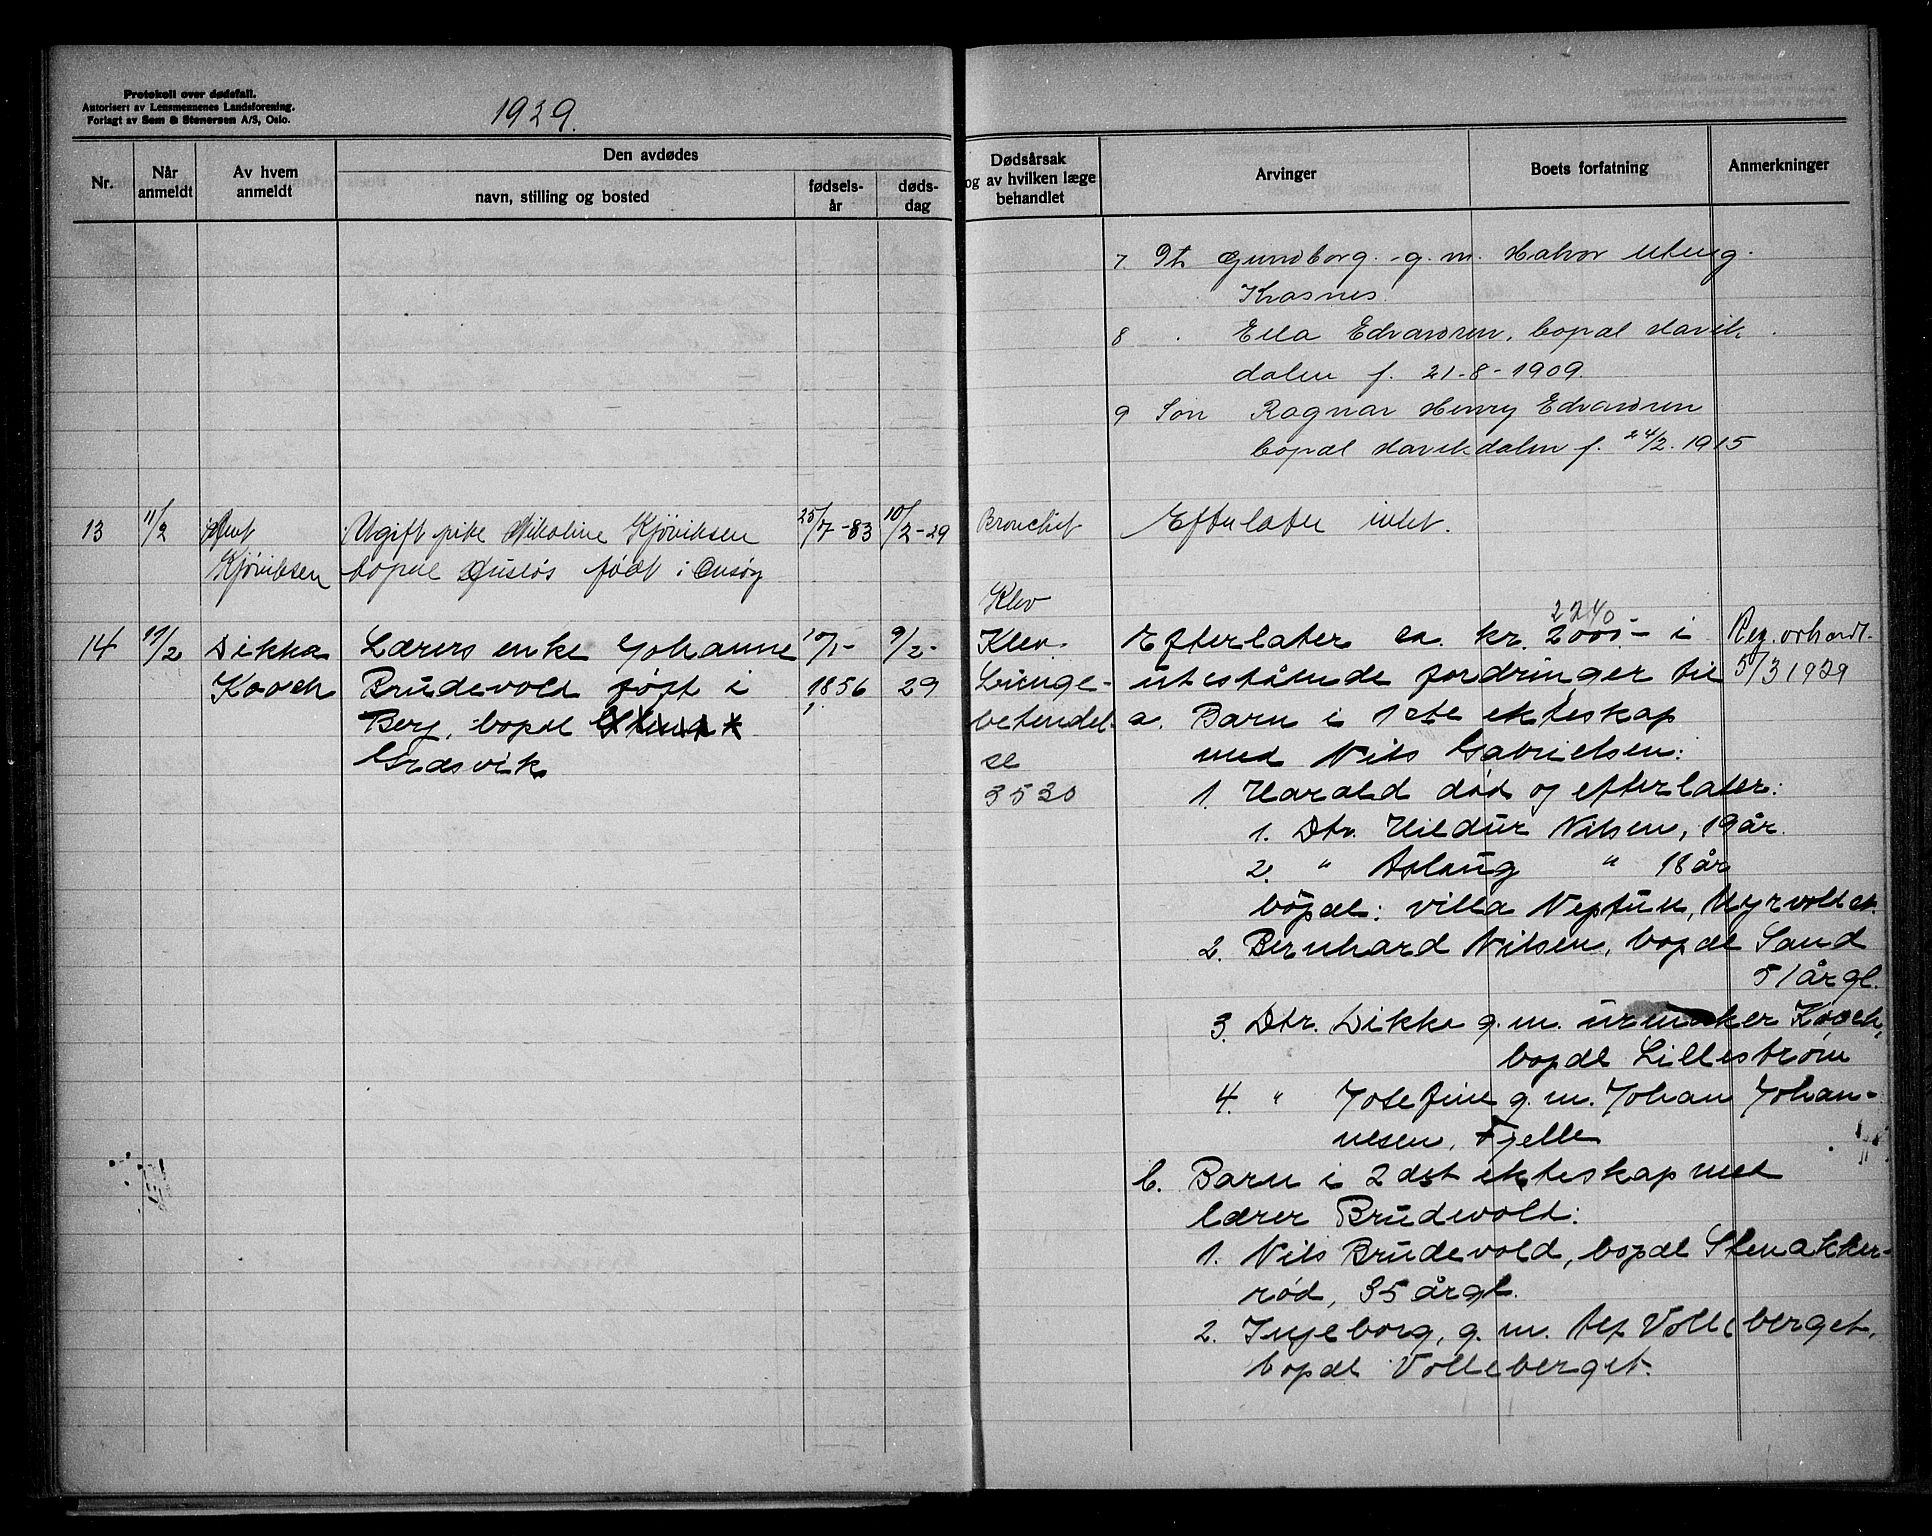 Protokoll over dødsfall.
Autorisert av Lensmennenes Landsforening.
Forlagt av Sem & Stenersen A/S, Oslo.
1929.
Nr.
Når anmeldt
Av hvem anmeldt
Den avdødes
navn, stilling og bosted
fødsels-år
døds-dag
Dødsårsak og av hvilken læge behandlet
Arvinger
Boets forfatning
Anmerkninger
7. Dt. Gundborg g. m. Halvor Uteng
Krosnes.
8 Ella Edvardsen, bopæl Havik
dalen f. 21-8-1909.
9 Søn Ragnar Henry Edvardsen
bopæl Havikdalen f. 24/2. 1915
13 11/2
Kjøviksen
Ugift pike Nikoline Kjøviksen
bopæl født i Onsøy
25/7-83 10/2-29
Bronchit
Klev
Efterlater intet.
14
Dikka
Koosch
Lærers enke Johanne
Brudevold født i
Berg, bopæl
Græsvik
10/1-
1856
9/2-
29
Klev.
Lunge-
betendel-
se
3530
2240
Efterlater ca. kr. 2000.- i
utestående fordringer til
a. Barn i 1ste ekteskap
med Nils Gabrielsen:
1. Harald død og efterlater:
1. Dtr. Hildur Nilsen, 19 år.
2. " Aslaug " 18 år
bopæl: villa Neptun, Myrvoldet.
2. Bernhard Nilsen, bopæl Sand
51 årgl.
3. Dtr. Dikka g. m. urmaker Koosch,
bopæl Lillestrøm
4. " Josefine g. m. Johan Johan-
nesen, Fjelle
b. Barn i 2det ekteskap med
lærer Brudevold:
1. Nils Brudevold, bopæl Stenakker-
rød, 35 årgl.
2. Ingeborg, g. m. Volleberget,
bopæl Volleberget.
5/3 1929